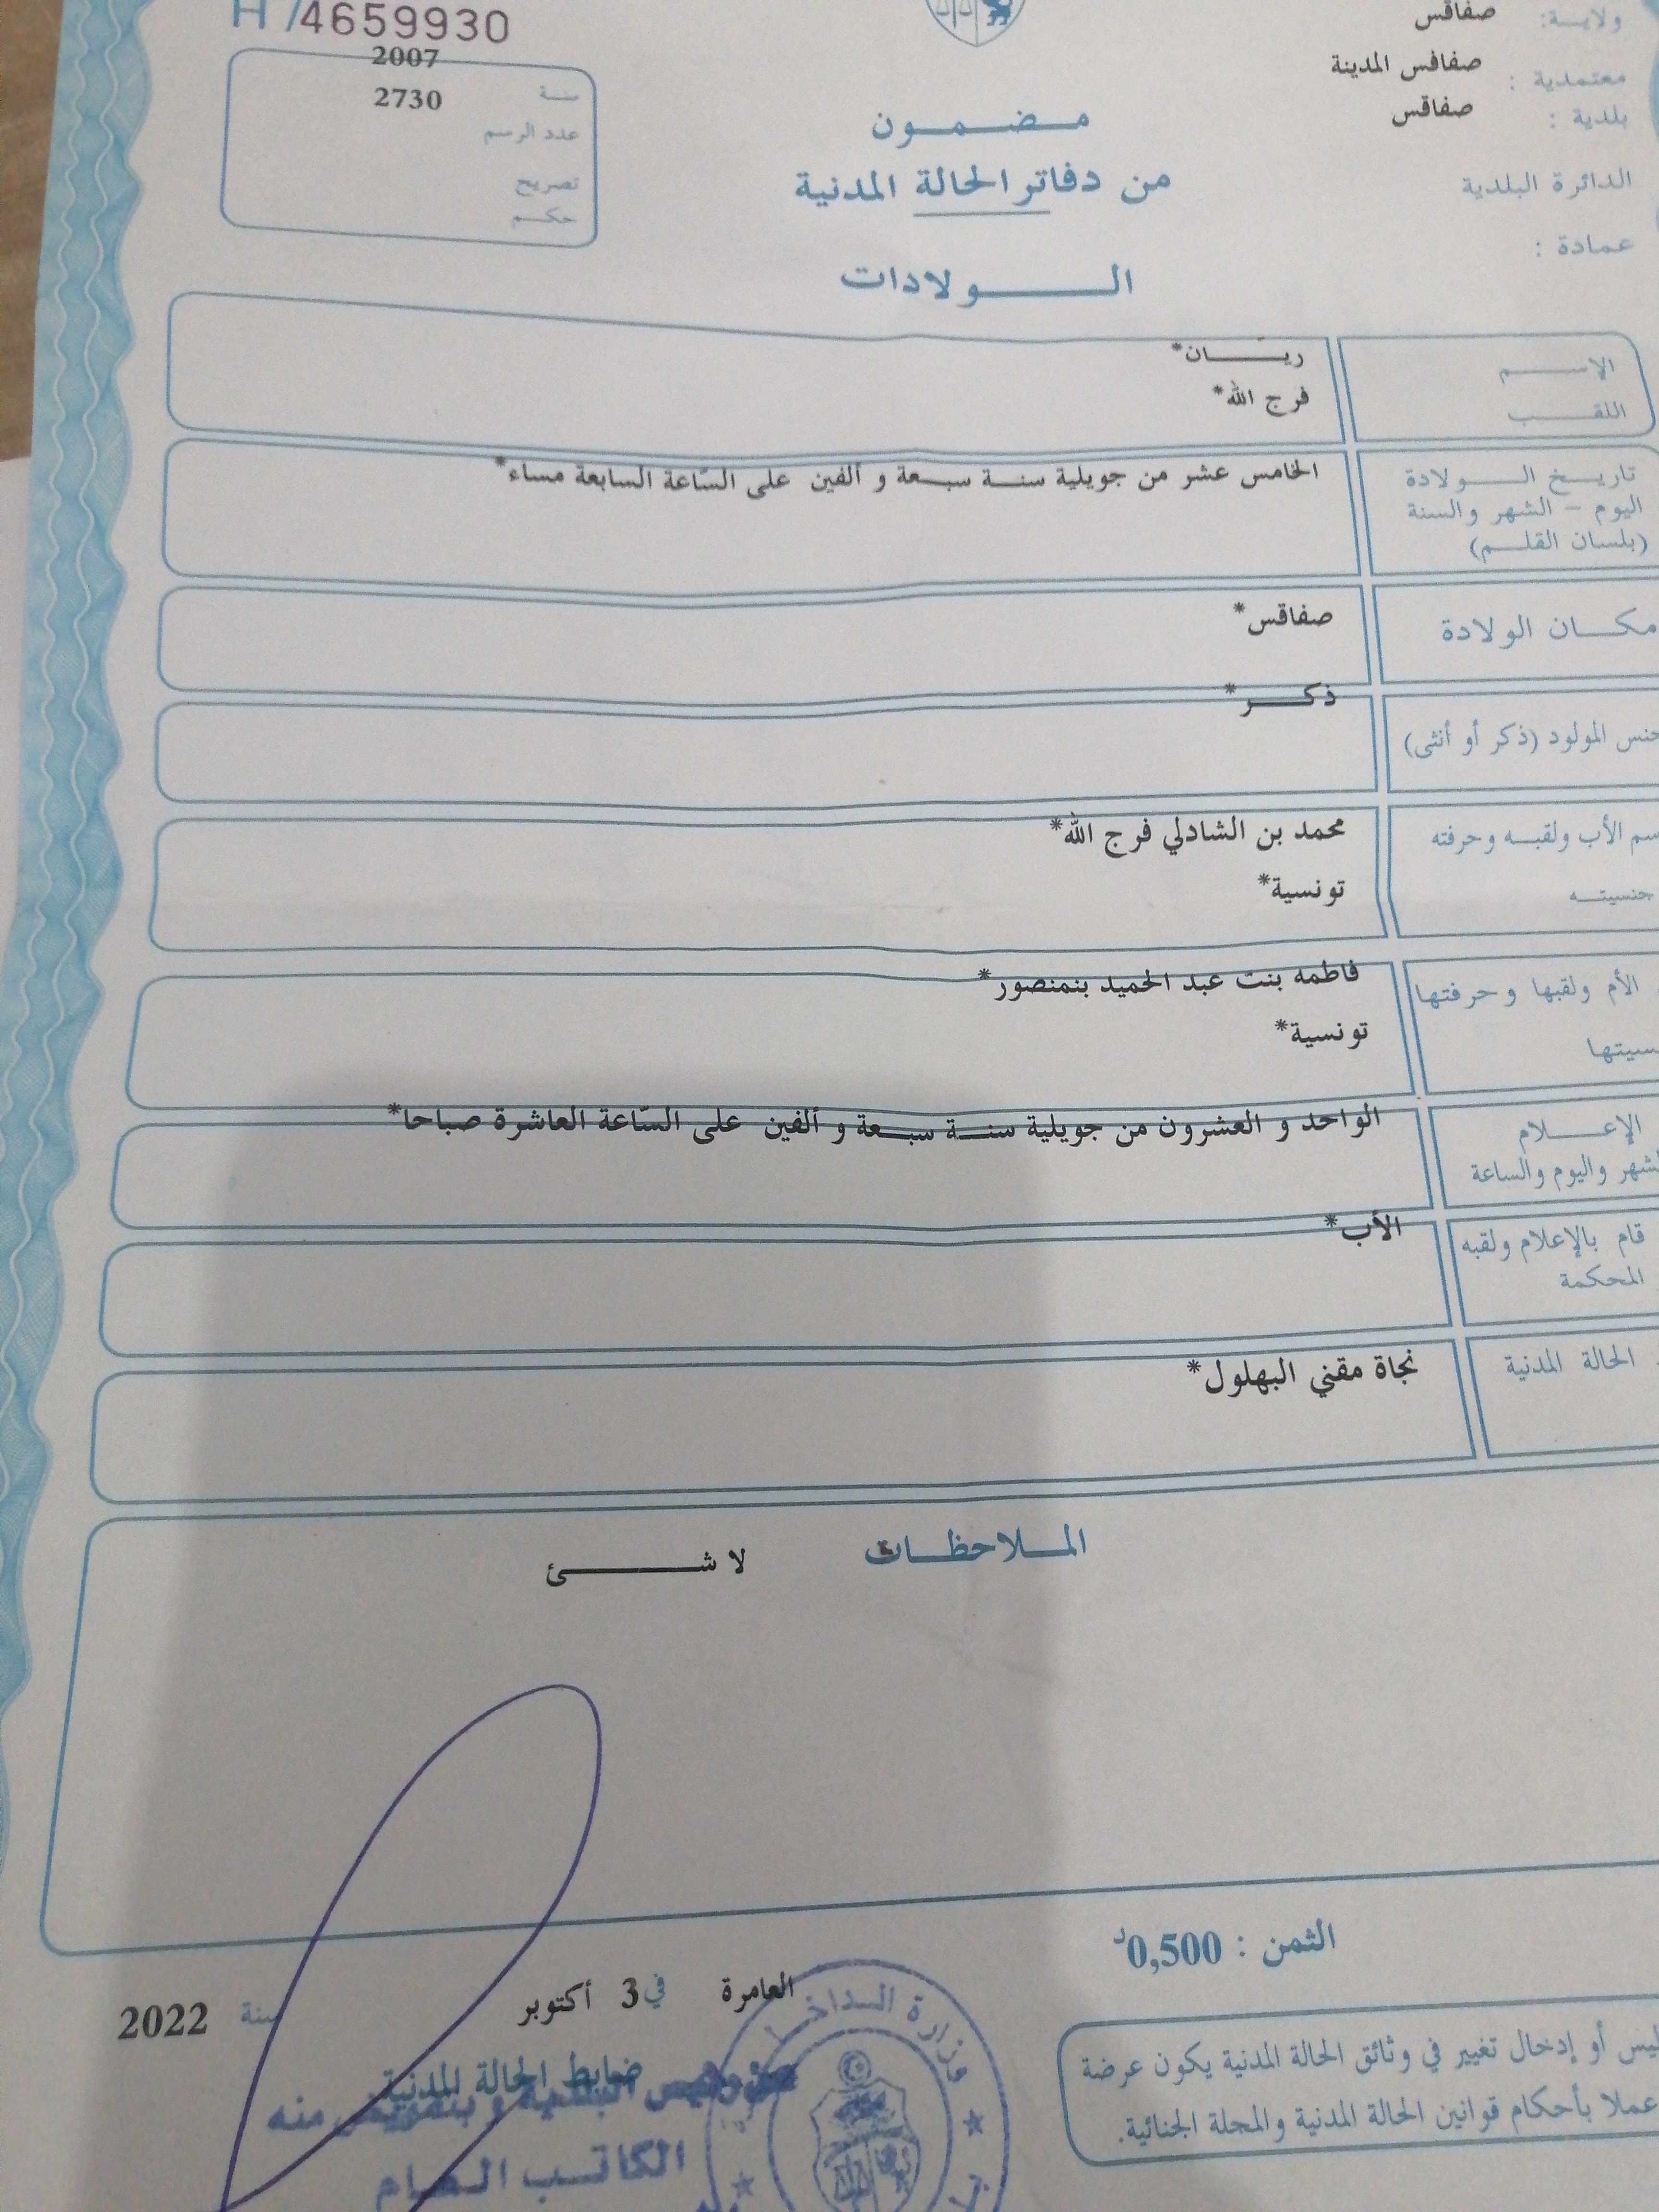 H /4659930
ولاية: صفاقس
معتمدية : صفاقس المدينة
بلدية : صفاقس
الدائرة البلدية
عمادة :
2007
سنة 2730
عدد الرسم
تصريح
حكم
مضمون
من دفاتر الحالة المدنية
الولادات
الاسم ريّان*
اللقب فرج الله*
تاريخ الولادة الخامس عشر من جويلية سنة سبعة و ألفين على السّاعة السابعة مساء*
اليوم - الشهر والسنة
(بلسان القلم)
مكان الولادة صفاقس*
جنس المولود (ذكر أو أنثى) ذكر*
سم الأب ولقبه وحرفته محمد بن الشادلي فرج الله*
جنسيته تونسية*
الأم ولقبها وحرفتها فاطمه بنت عبد الحميد بنمنصور*
سيتها تونسية*
الإعلام الواحد و العشرون من جويلية سنة سبعة و ألفين على السّاعة العاشرة صباحا*
لشهر واليوم والساعة
قام بالإعلام ولقبه الأب*
المحكمة
الحالة المدنية نجاة مقني البهلول*
الملاحظات
لا شئ
الثمن : 0,500د
العامرة في 3 أكتوبر سنة 2022
ضابط الحالة المدنية
منه
الكاتب العام
وزارة الداخ
ليس أو إدخال تغيير في وثائق الحالة المدنية يكون عرضة
عملا بأحكام قوانين الحالة المدنية والمجلة الجنائية.